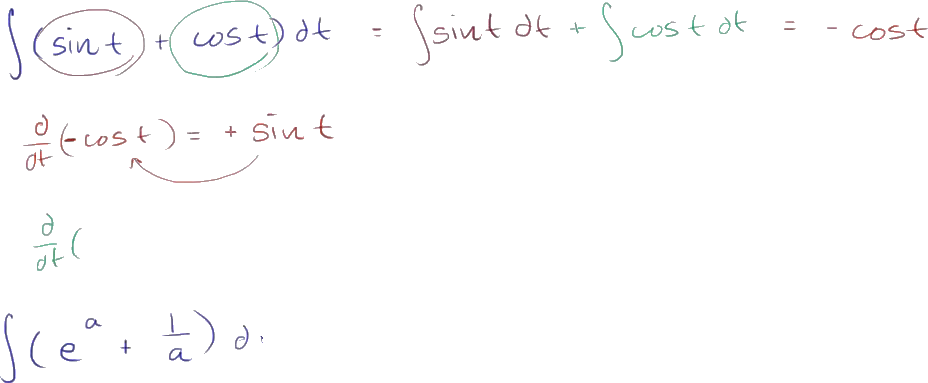 ∫(sin t + cos t) dt = ∫sin t dt + ∫cos t dt = - cos t
d/dt (-cos t) = + sin t
d/dt (
∫(e^a + 1/a) d